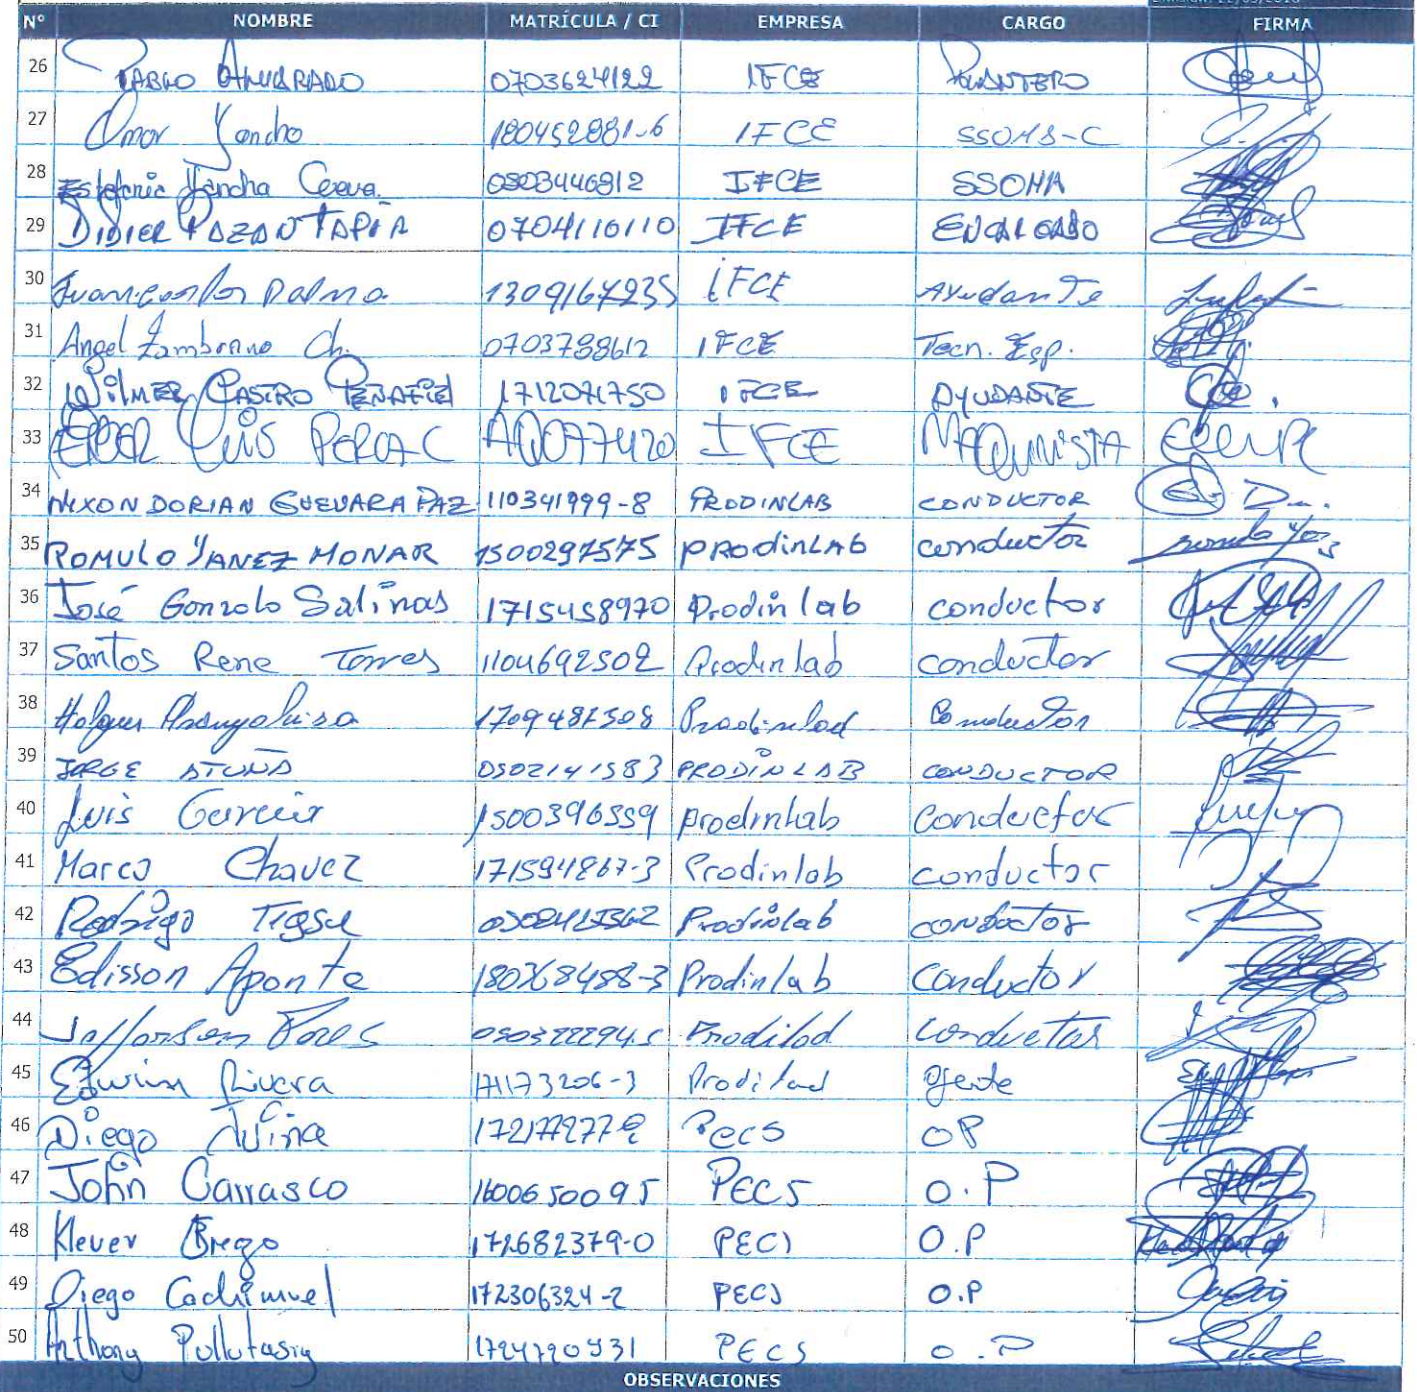 N° NOMBRE MATRÍCULA / CI EMPRESA CARGO FIRMA
26 PABLO ALVARADO 0703624122 IFCE PUNTERO
27 Omar Yancho 180452881-6 IFCE
28 Estefania Yancha Cueva. 0503446812 IFCE SSOMA
29 DIDIER PAZAN TAPIA 0704116110 IFCE ENCARGADO
30 Juan carlos Palma 1309167235 IFCE Ayudante
31 Angel Zambrano Ch. 0703788612 IFCE Tecn. Esp.
32 WILMER CASTRO PEÑAFIEL 1712071750 IFCE AYUDANTE
33 LUIS IFCE MAQUINISTA
34 NIXON DORIAN GUEVARA PAZ 110341999-8 PRODINLAB CONDUCTOR
35 ROMULO YANEZ MONAR 1500297575 PRodinLAb conductor
36 José Gonzolo Salinas 1715458970 Prodin lab conductor
37 Santos Rene Torres 1104692502 Prodinlab conductor
38 Holguer 1709487508 Conductor
39 JORGE ATUÑA 0502141583 PRODINLAB CONDUCTOR
40 Luis Garcia 1500396559 prodinlab Conductor
41 Marco Chavez 171594867-3 Prodinlab conductor
42 Rodrigo Tigse Prodinlab conductor
43 Edisson Aponte 180368488-3 Prodinlab Conductor
44 Jefferson Prodilad conductor
45 Edwin Rivera 171173206-3 Prodilad
46 Diego Pecs OP
47 John Carrasco 1600650095 PECS O.P
48 Klever Brego 172682379-0 PECS O.P
49 Diego Cachimuel 172306324-2 PECS O.P
50 Anthony Pullutasig 1724720931 PECS O.P
OBSERVACIONES